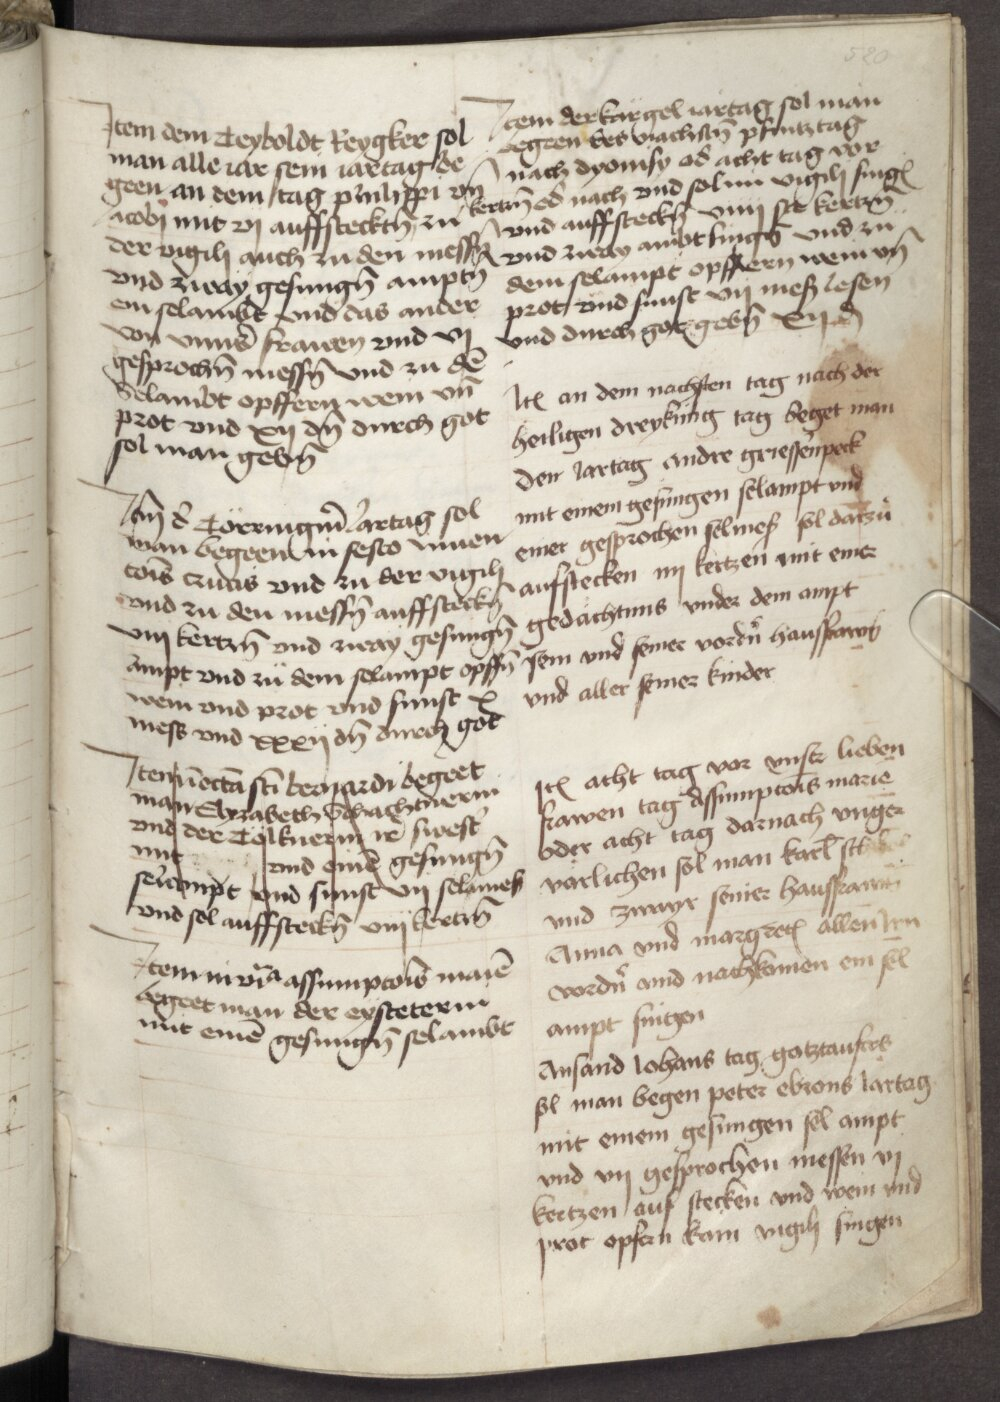 580
Item dem Teyboldt Reygker sol
man alle iar sein iartag be
geen an dem tag philippi vn̄
Jacobi mit vi auffstecktn̄ zu kertzn̄
der vigilj auch zu den messn̄
vnd zway gesungn̄ amptn̄
ein selambt vnd das ander
von vnnser frawen vnd vj
gesprochn̄ messn̄ vnd zu dē
Selambt opffern wein vn̄
prot vnd xij dn̄ durch got
sol man gebn̄
Itm̄ d' Törringin̄ Jartag sol
man begeen in festo Inuen
cōis crucis vnd zu der vigilj
vnd zu den messn̄ auffsteckn̄
viij kertzn̄ vnd zway gesungn̄
ampt vnd zu dem selampt opffn̄
wein vnd prot vnd sunst x
mess vnd xxxij dn̄ durch got
Item stī bernardi begeet
man Elyzabeth Schachtnerin
vnd der Tolknerin ir swest'
mit vnd einē gesungn̄
selampt vnd sunst vij selamess
vnd sol auffsteckn̄ viij kertzn̄
Item in assumptōis marie
begeet man der eysteterin
mit einē gesungn̄ selambt
Item der kargel iartag sol man
begeen des nachstn̄ pfintztag
nach dyonisy od' acht tag vor
od' nach vnd sol im vigilj singn̄
vnd auffsteckn̄ viiij kertzn̄
vnd zway ambt singn̄ vnd zu
dem selampt opffern wein vn̄
prot vnd sunst vij mess lesen
vnd durch got gebn̄ xij dn̄
Itē an dem nachsten tag nach der
heiligen dreykunig tag beget man
den Jartag andre griessenpeck
mit einem gesungen selampt vnd
einer gesprochen selmess sol darzu
aufstecken iiij kertzen mit einer
gedachtnus vnder dem ampt
sein vnd seiner vordn̄ hausfrawn
vnd aller seiner kinder
Itē acht tag vor vnser lieben
frawen tag Assumptōis marie
oder acht tag darnach vnger
varlichen sol man karl
vnd zwayr seiner hausfrawn
Anna vnd margretē allen Irn
vordn̄ vnd nachkomen ein sel
ampt singen
An sand Johans tag gotztaufers
sol man begen peter ebrons Jartag
mit einem gesungen sel ampt
vnd vij gesprochen messen vj
kertzen auf stecken vnd wein vnd
prot opfern kain vigilj singen